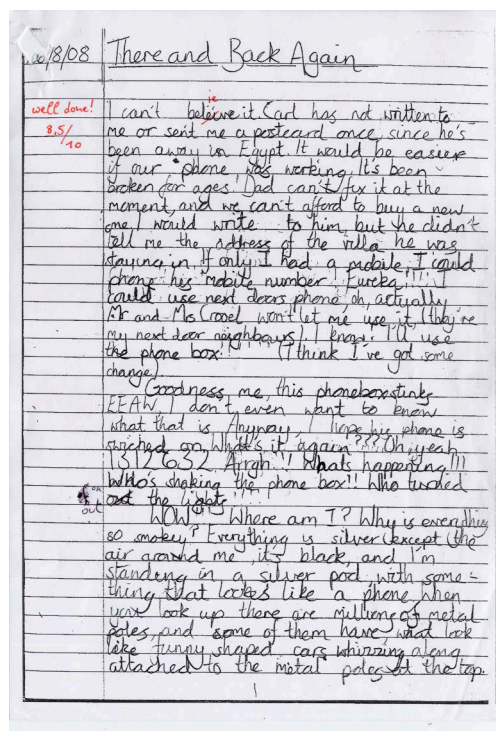 26/8/08 There and Back Again
ie
well done!
8,5/10
I can't beleive it. Carl has not written to
me or sent me a postcard once, since he's
been away in Egypt. It would be easier
if our phone was working. It's been
broken for ages. Dad can't fix it at the
moment, and we can't afford to buy a new
one. I would write to him, but he didn't
tell me the address of the villa he was
staying in. If only I had a mobile, I could
phone his mobile number! Eureka!!!! I
could use next doors phone, oh, actyally
Mr and Mrs won't let me use it (they're
my next door neighbours). I know! I'll use
the phone box!! (I think I've got some
change)
Goodness me, this phonebox stinks
EEAW I don't even want to know
what that is. Anyway, I hope his phone is
swiched on. What's it again??? Oh, yeah
1312632. Airgh!! Whats happening!!!
Who's shaking the phone box!! Who turned
out the lights!!
out
WOW!! Where am I? Why is everything
so smokey? Everything is silver (except (the
air around me, its black, and I'm
standing in a silver pod, with some-
thing that looks like a phone when
you look up there are millions of metal
poles, and some of them have what look
like funny shaped cars whirring along
attached to the metal poles at the top.
1